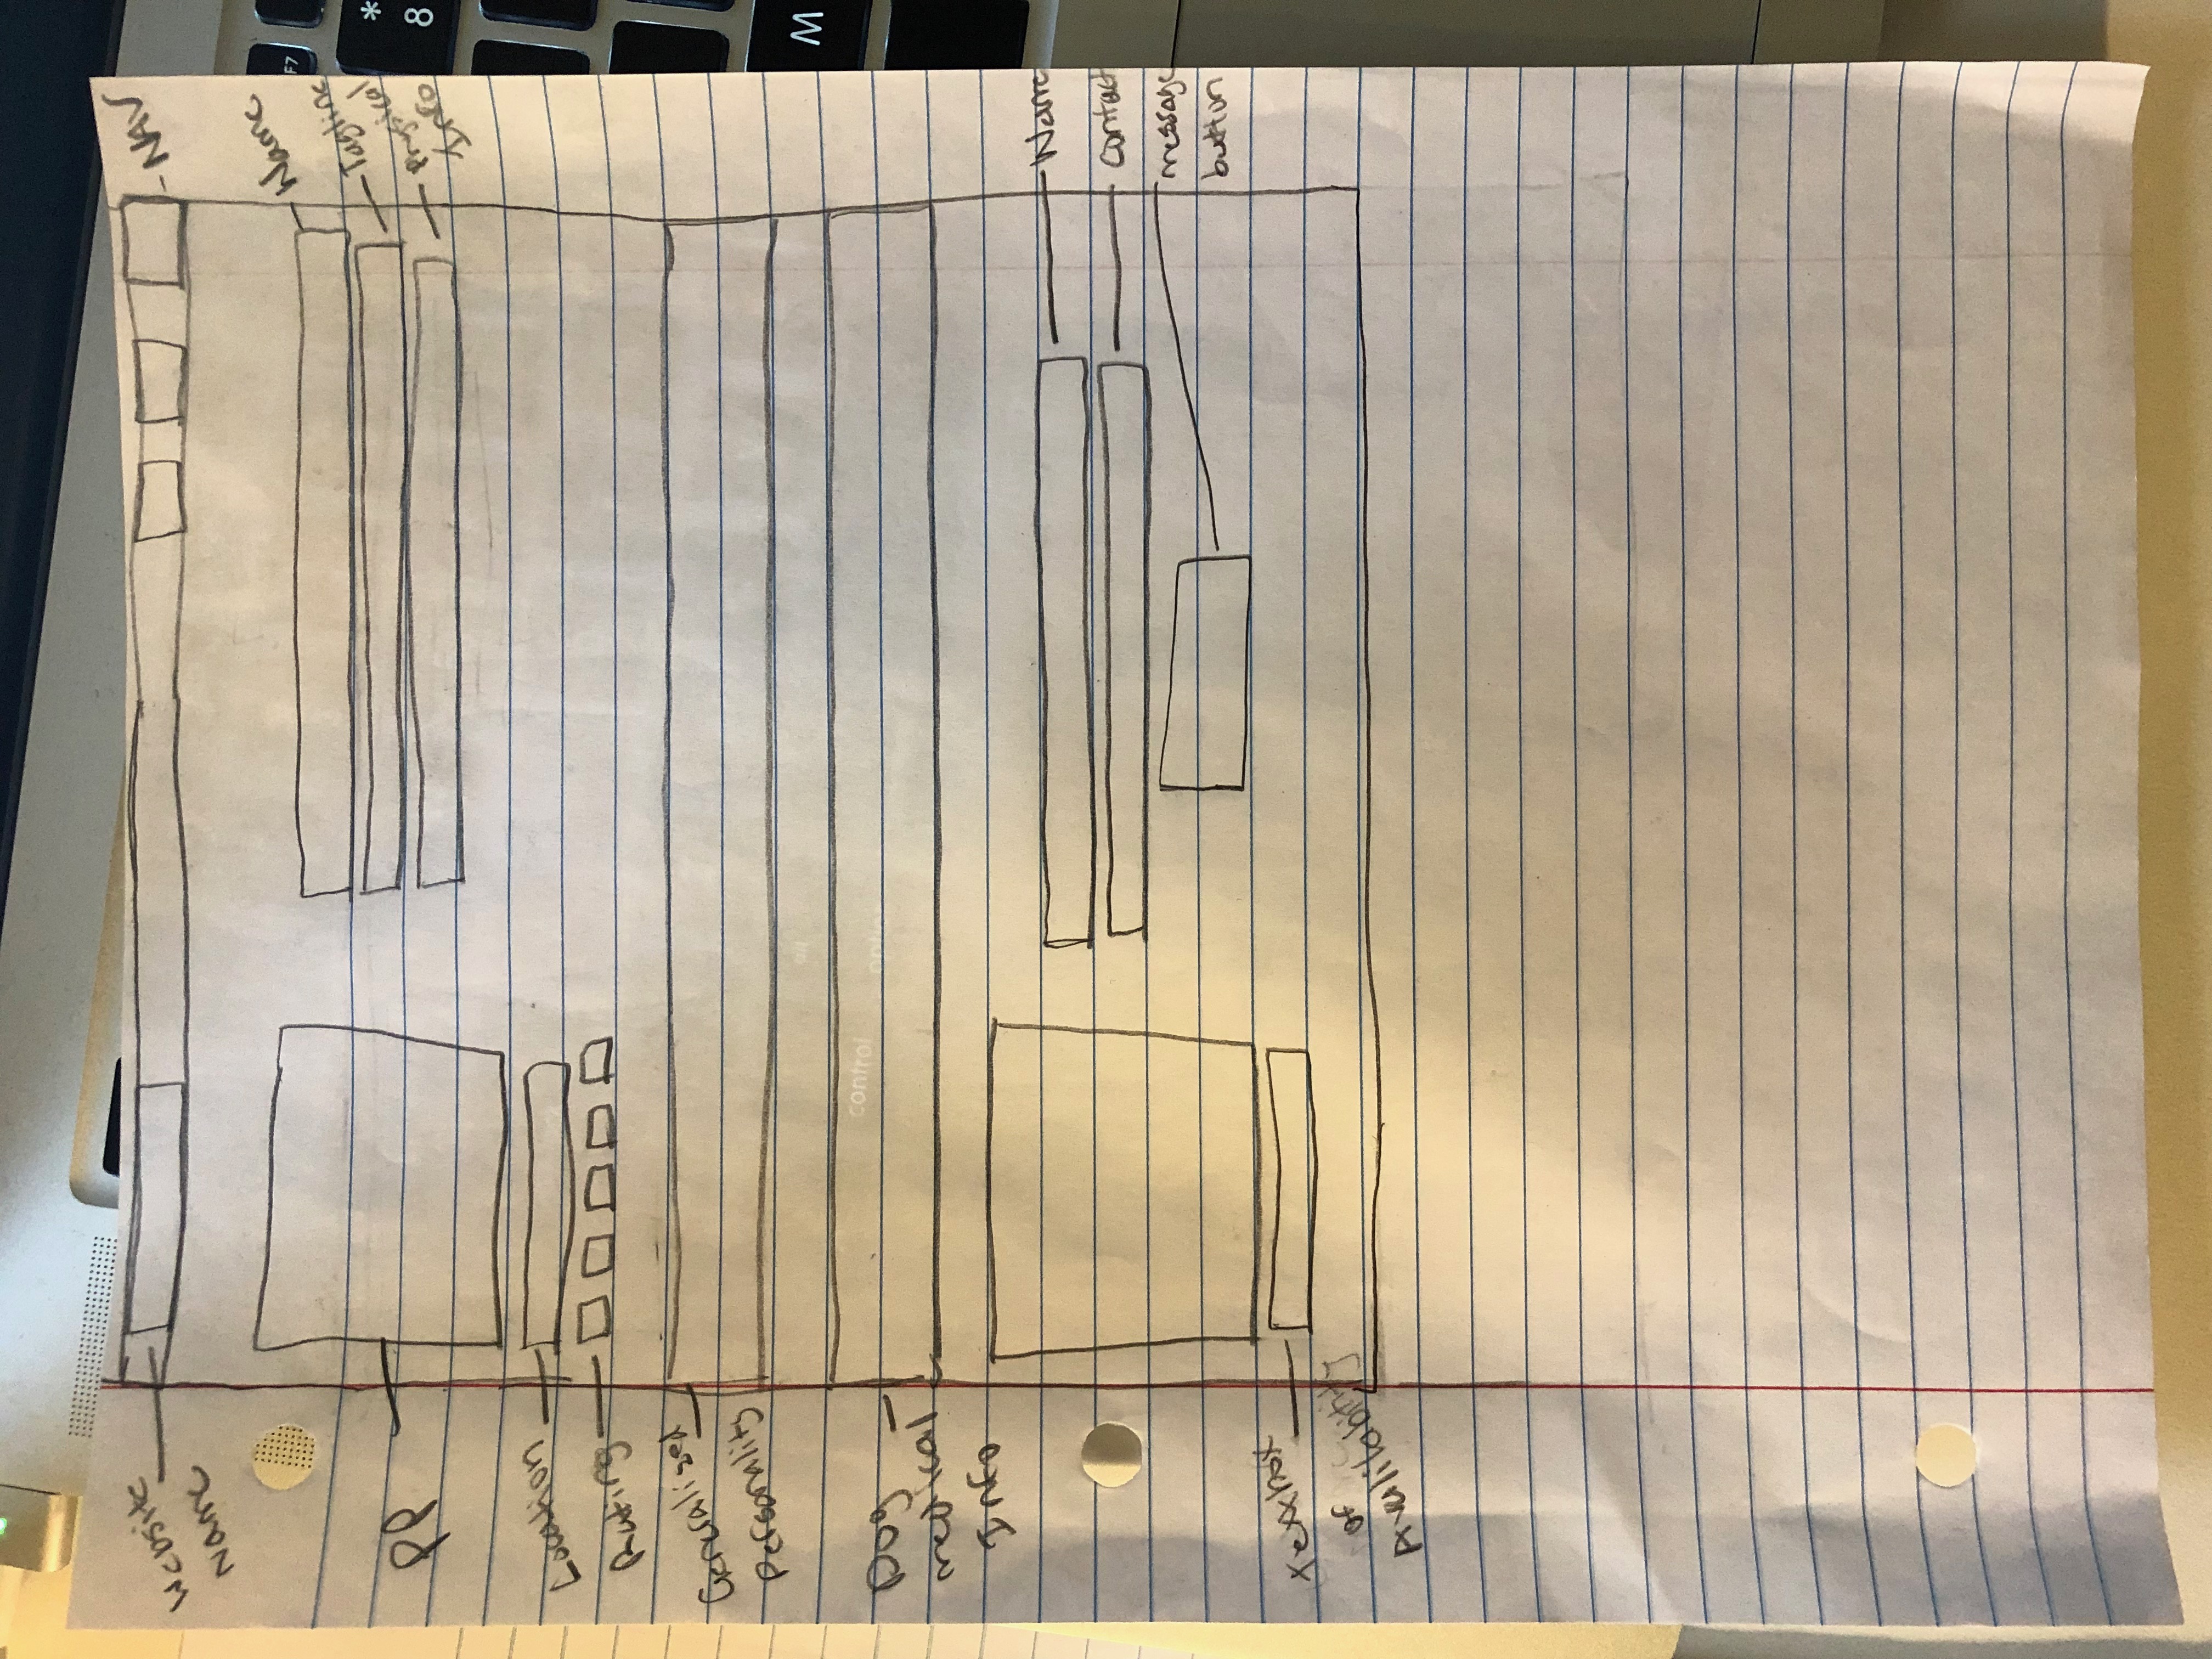 Website
Name
NAV
Name
Tagline
Physical
Info
PP
Location
Rating
Generalized
Personality
Dog
medical
Info
Name
contact
message
button
of
Avalilability
control
F7
*
8
M